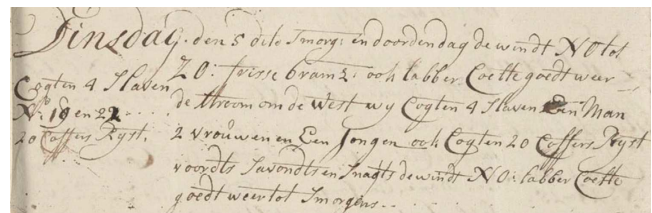 Dinsdag. den 5 dito Smorg: en doordendag de windt NO tot
ZO: frisse bramz: ook labber Coelte goedt weer
de stroom om de West wy Cogten 4 Slaven Een Man
2 vrouwen en Een Jongen ook Cogten 20 Coffers Ryst
voordts Savondts en Snagts de windt NO: labber Coelte
goedt weer tot Smorgens..
Cogten 4 Slaven
No 19 en 22
20 Coffers Ryst.